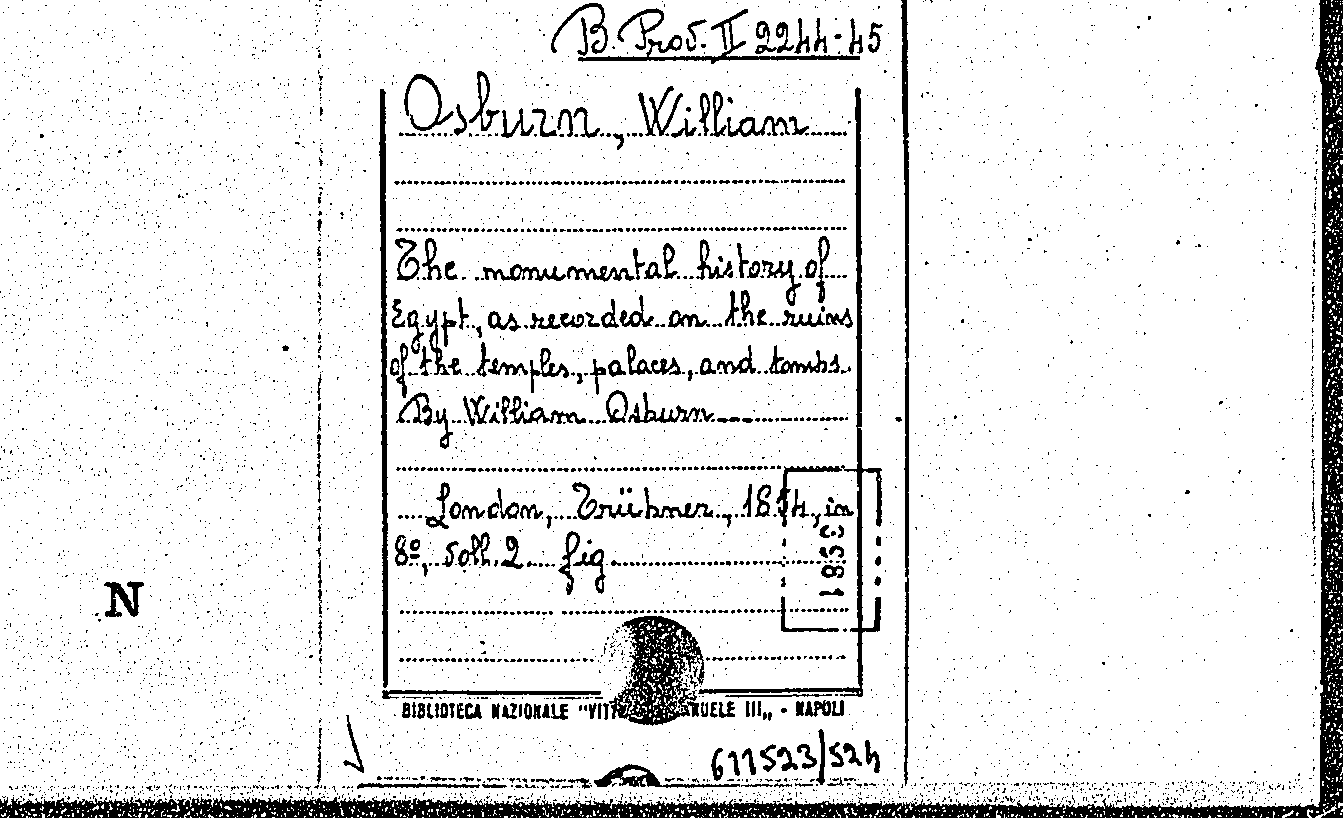 B. Prov. II 2244-45
Osburn, William
The monumental history of
Egypt, as recorded on the ruins
of the temples, palaces, and tombs.
By William Osburn
London, Trübner, 1854, in
8º, voll. 2 fig.
1853
N
BIBLIOTECA NAZIONALE "VITT NUELE III„ - NAPOLI
611523/524